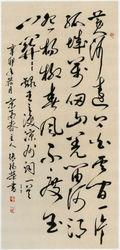 黄河远上白云间一片
孤城万仞山羌笛何须
怨杨柳春风不度玉
门关 录王之涣凉州词一首
辛卯年 主人 张 书